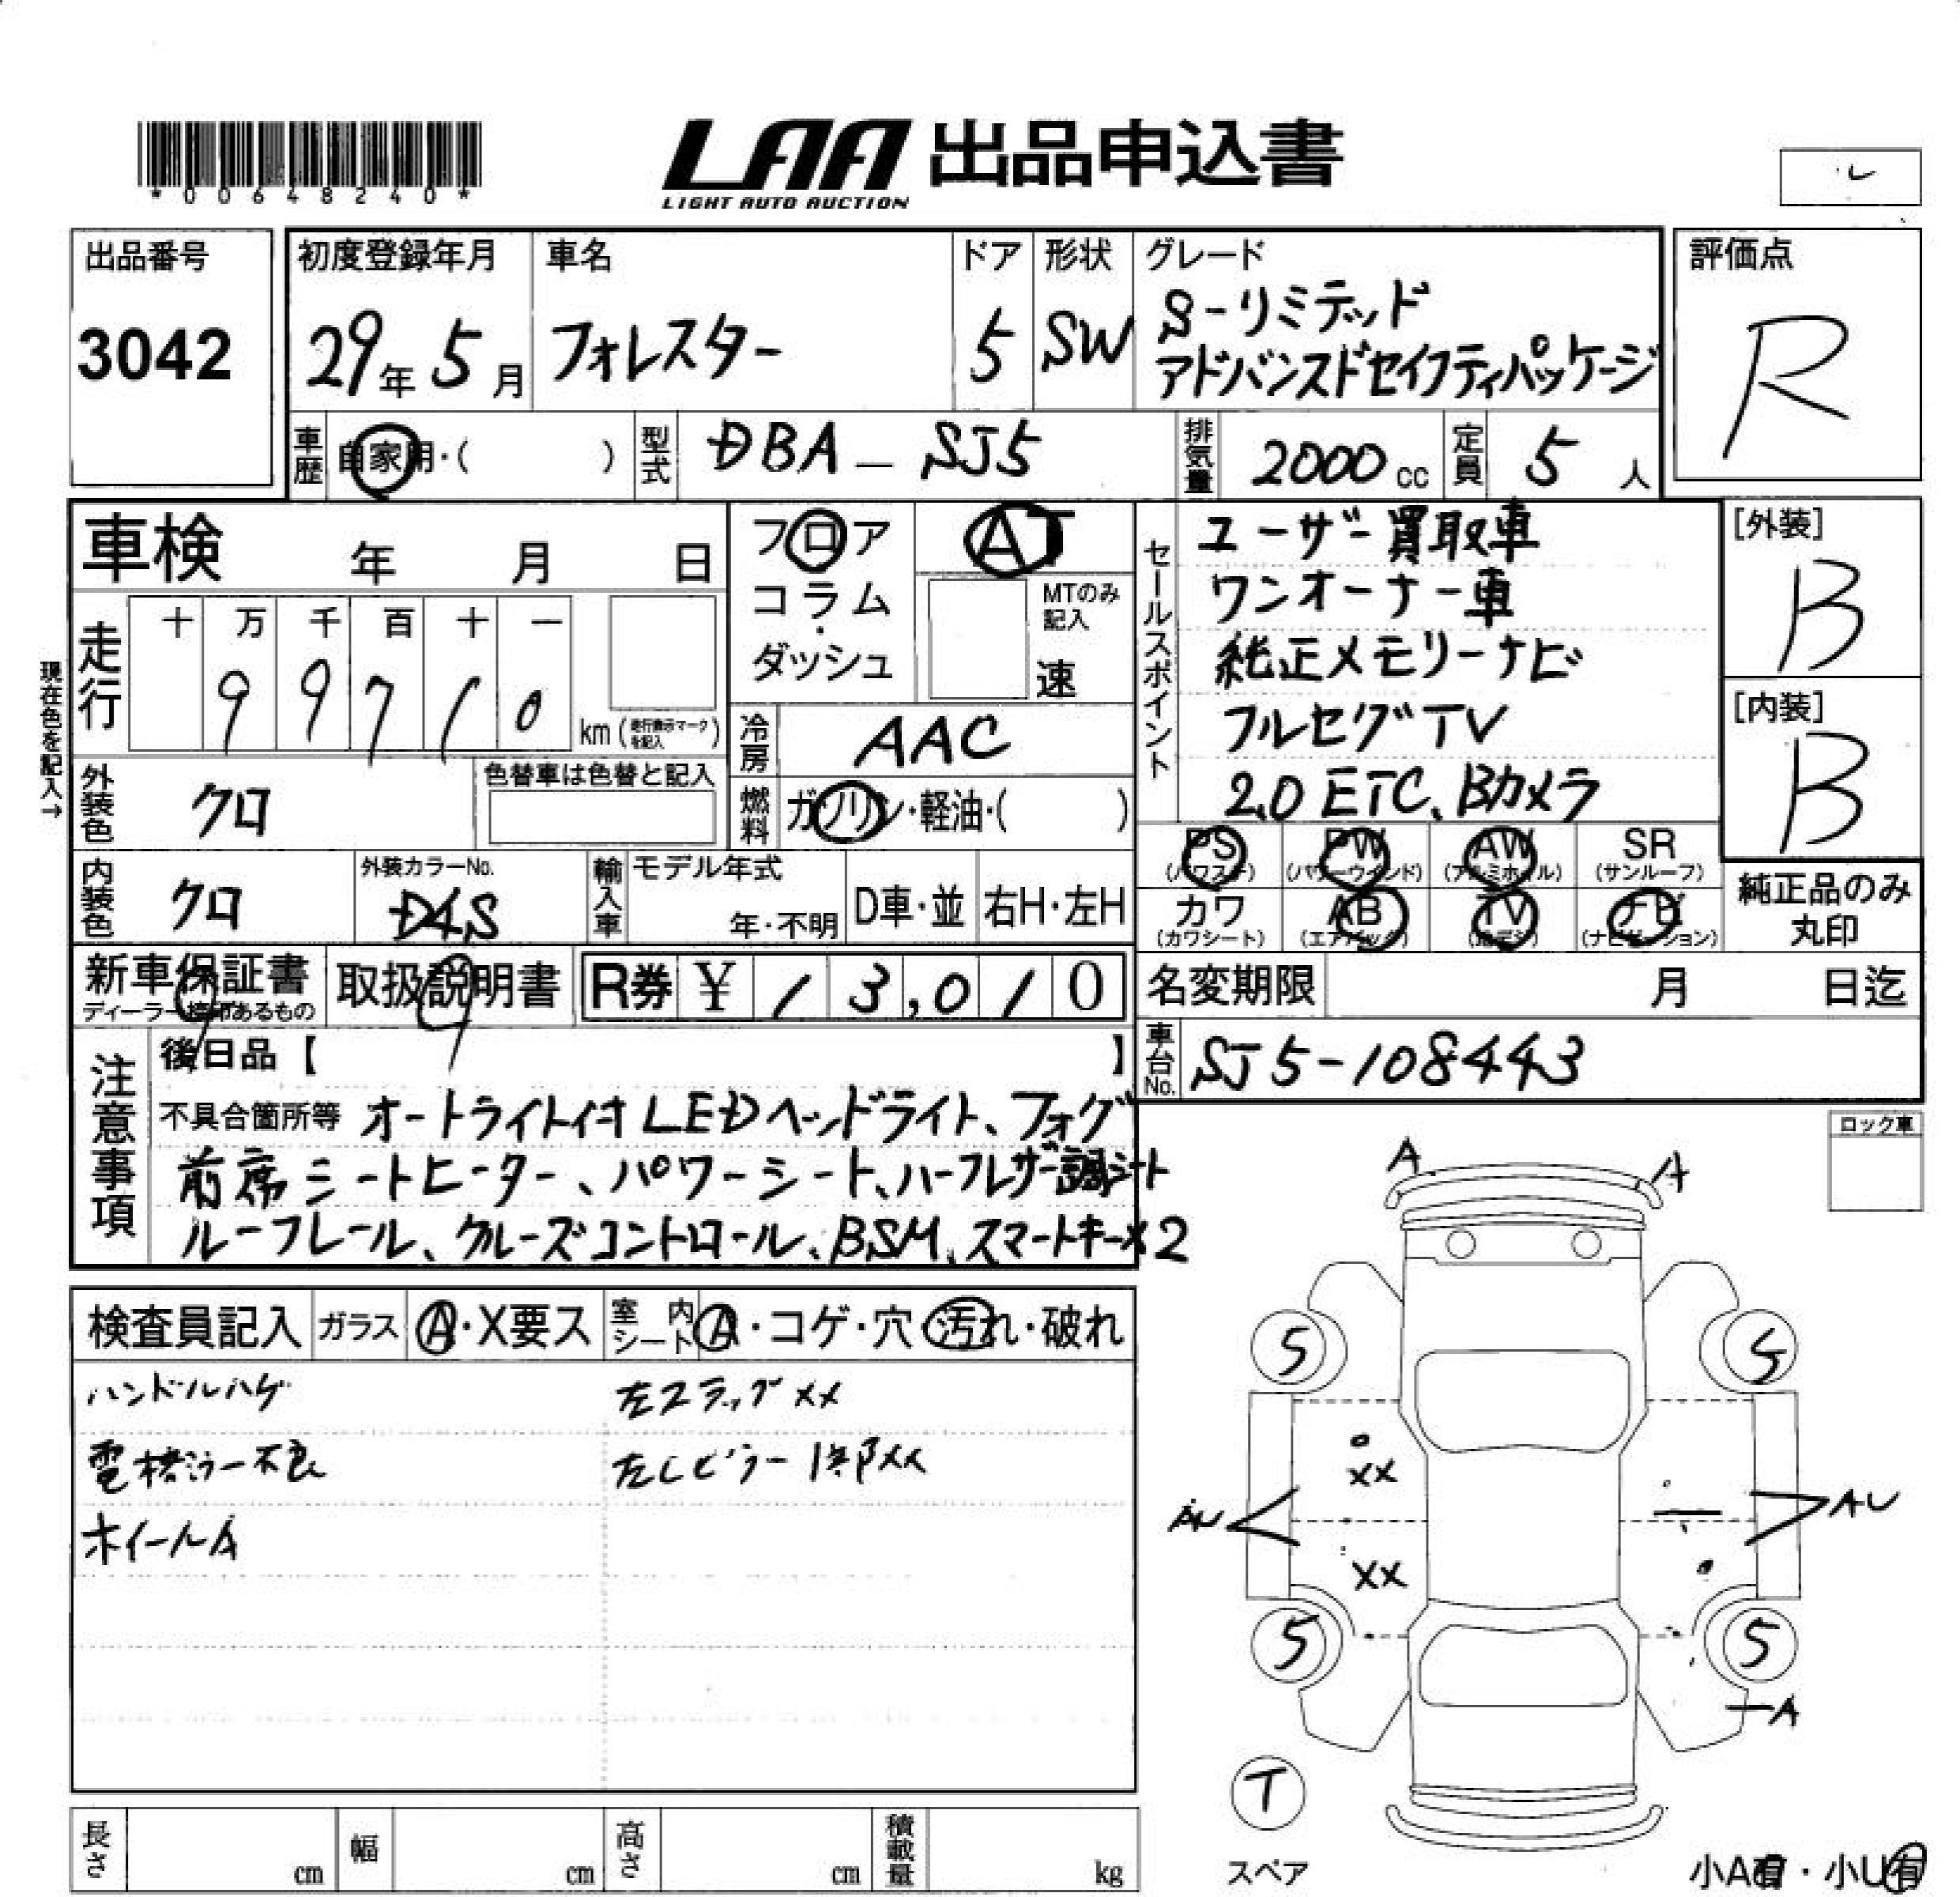 *00648240*
LAA 出品申込書
LIGHT AUTO AUCTION
出品番号
3042
初度登録年月
29年5月
車名
フォレスター
ドア
5
形状
SW
グレード
S-リミテッド
アドバンスドセイフティパッケージ
評価点
R
車歴
自家用・( )
型式
DBA - SJ5
排気量
2000cc
定員
5人
車検 年 月 日
現在色を記入→
走行
十 万 千 百 十 一
9 9 7 1 0
km(走行表示マークを記入)
フロア
コラム
・
ダッシュ
AT
MTのみ
記入
速
冷房
AAC
燃料
ガソリン・軽油・( )
セールスポイント
ユーザー買取車
ワンオーナー車
純正メモリーナビ
フルセグTV
2.0 ETC、Bカメラ
[外装]
B
[内装]
B
外装色
クロ
色替車は色替と記入
内装色
クロ
外装カラーNo.
D4S
輸入車
モデル年式
年・不明
D車・並
右H・左H
PS
(パワステ)
PW
(パワーウインド)
AW
(アルミホイル)
SR
(サンルーフ)
カワ
(カワシート)
AB
(エアバック)
TV
(地デジ)
ナビ
(ナビゲーション)
純正品のみ
丸印
新車保証書
ディーラー捺印あるもの
取扱説明書
R券 ¥ 13,010
名変期限 月 日迄
車台No.
SJ5-108443
注意事項
後日品【 】
不具合箇所等 オートライト付LEDヘッドライト、フォグ
前席シートヒーター、パワーシート、ハーフレザー調シート
ルーフレール、クルーズコントロール、BSM、スマートキー×2
ロック車
検査員記入
ガラス
A・X要ス
室内シート
A・コゲ・穴・汚れ・破れ
ハンドルハゲ
左ステップXX
電格ミラー不良
左Cピラー1部XX
ホイールA
A A
5 5
XX
AU AU
XX
5 5
A
T
スペア
小A有・小U有
長さ cm
幅 cm
高さ cm
積載量 kg